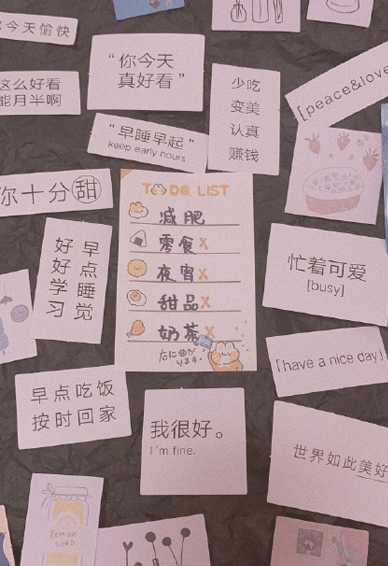 今天愉快
这么好看
能月半啊
“你今天
真好看”
少吃
变美
认真
赚钱
[peace&love
“早睡早起”
keep early hours
你十分甜
TO DO LIST
减肥
零食X
夜宵X
甜品X
奶茶X
早点睡觉
好好学习
忙着可爱
[busy]
[have a nice day]
早点吃饭
按时回家
我很好。
I'm fine.
世界如此美好
lemon